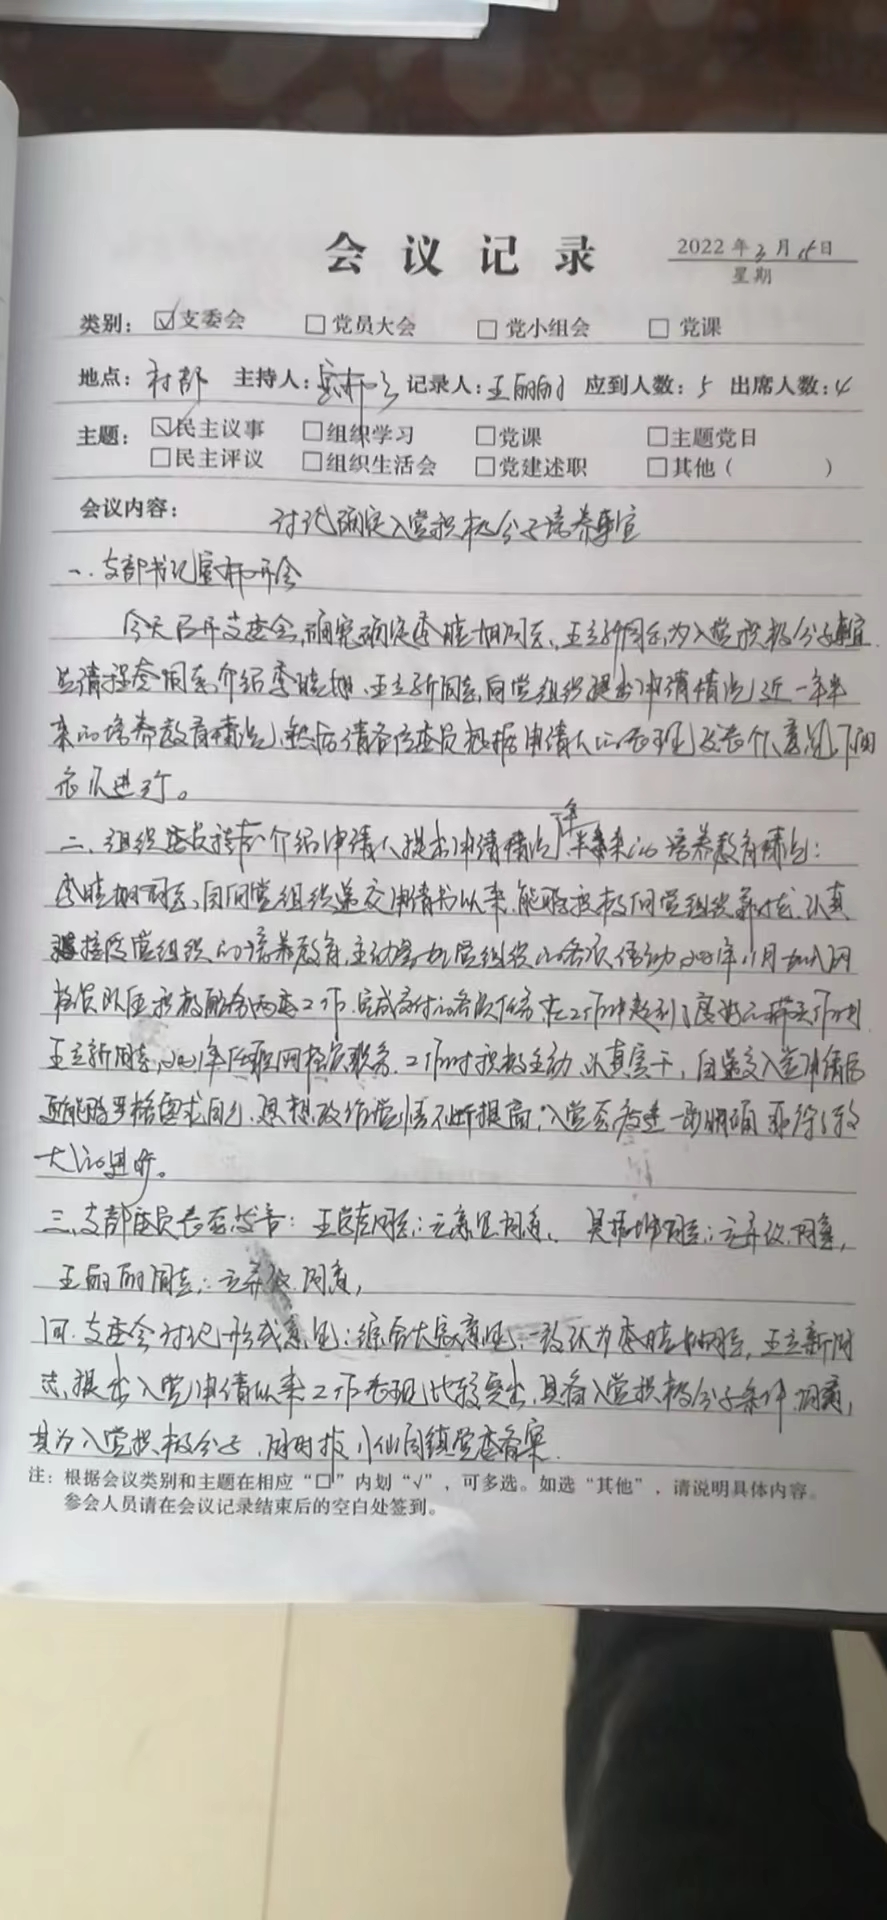 会议记录
2022年3月15日
星期
类别：☑支委会 □党员大会 □党小组会 □党课
地点：村部 主持人： 记录人：王丽丽 应到人数：5 出席人数：4
主题：☑民主议事 □组织学习 □党课 □主题党日
□民主评议 □组织生活会 □党建述职 □其他（ ）
会议内容： 讨论确定入党积极分子培养事宜
一、支部书记 开会
今天召开支委会，研究确定李 同志、王立新同志，为入党积极分子事宜
先请 介绍李 、王立新同志向党组织提出申请情况，近一年半
来的培养教育情况，然后请各位委员根据申请人的表现，发表个人意见，下面
依次进行。
二、组织委员 介绍申请人提出申请情况，一年半来的培养教育情况：
李 同志，自向党组织递交申请书以来，能够积极向党组织靠拢，认真
接受党组织的培养教育，主动参加党组织的各项活动，2021年11月加入网
格员队伍积极配合两委工作，完成交付的各项任务，在工作中起到了良好的带头作用
王立新同志，2021年任职网格员职务，工作时积极主动，认真实干，自递交入党申请后
更能够严格要求自己，思想政治觉悟不断提高，入党 进一步明确，取得了较
大的进步。
三、支部委员 发言：王 同志：无意见，同意， 吴 同志：无异议，同意，
王丽丽同志：无异议，同意，
四、支委会讨论形成意见：综合大家意见，一致认为李 同志，王立新同
志，提出入党申请以来工作表现比较突出，具备入党积极分子条件，同意，
其为入党积极分子，同时报八仙同镇党委备案。
注：根据会议类别和主题在相应“□”内划“√”，可多选。如选“其他”，请说明具体内容。
参会人员请在会议记录结束后的空白处签到。